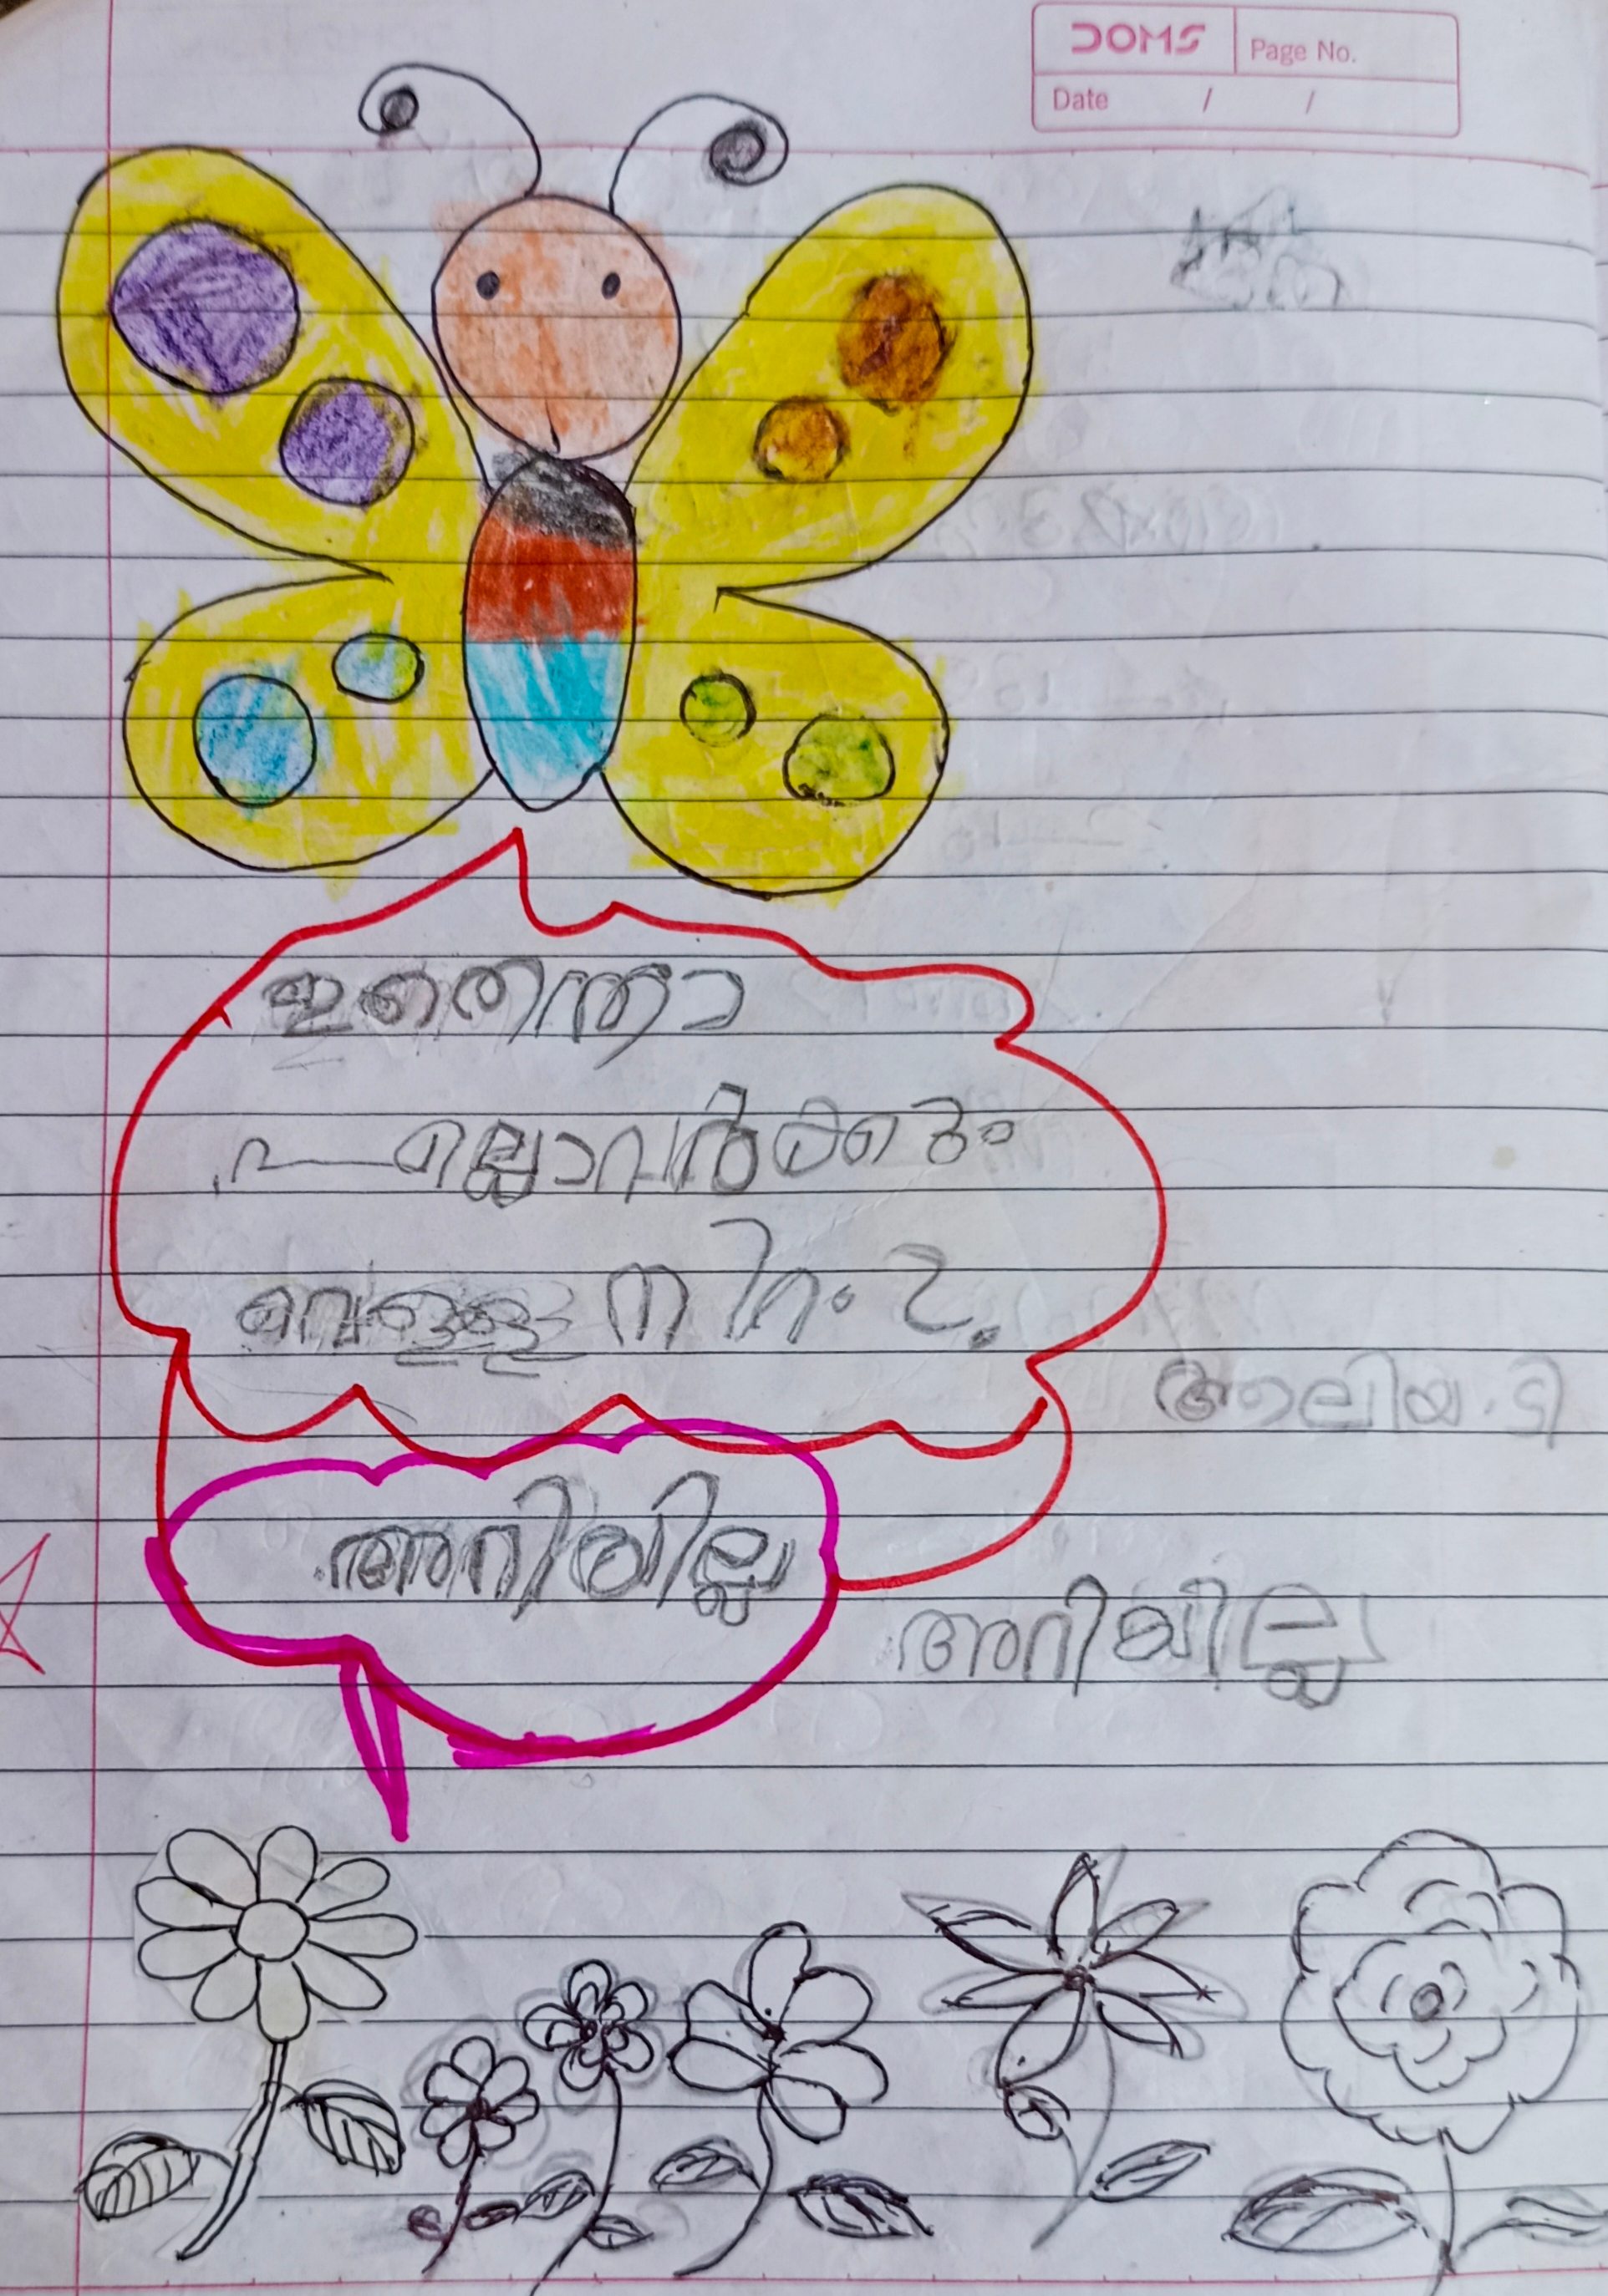 DOMS
Page No.
Date / /
ഇതെന്താ
എല്ലാവർക്കും
വെള്ള നിറം ?
അലിയ . ടി
അറിയില്ല
അറിയില്ല